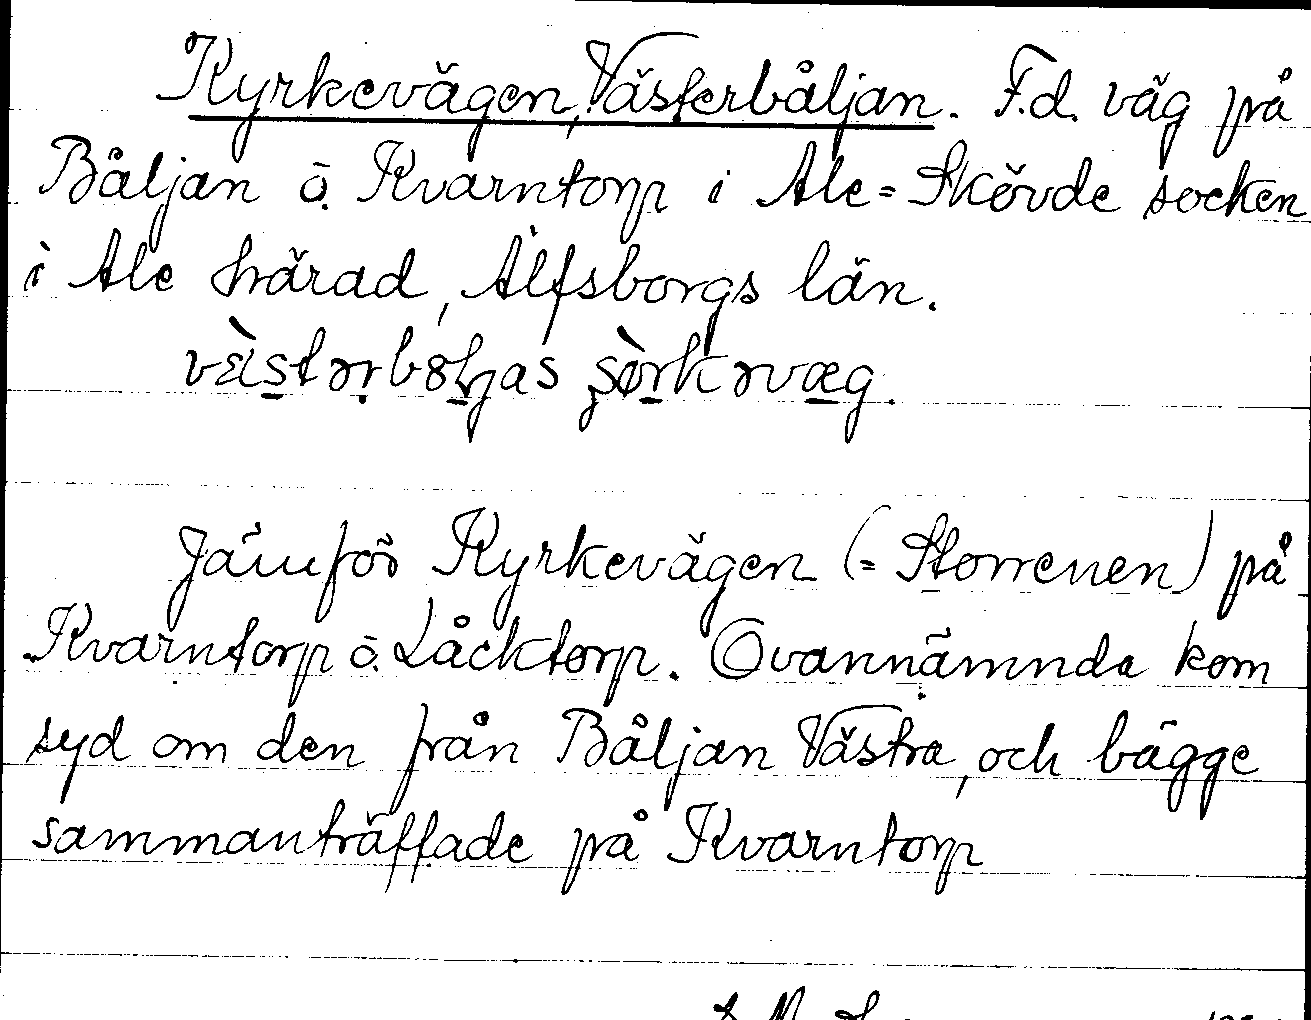 Kyrkevägen, Västerbåljan. F.d. väg på
Båljan o. Kvarntorp i Ale=Skövde socken
i Ale härad, Älfsborgs län.
Jämför Kyrkevägen (= Storrenen) på
Kvarntorp o. Låcktorp. Ovannämnda kom
syd om den från Båljan Västra, och bägge
sammanträffade på Kvarntorp